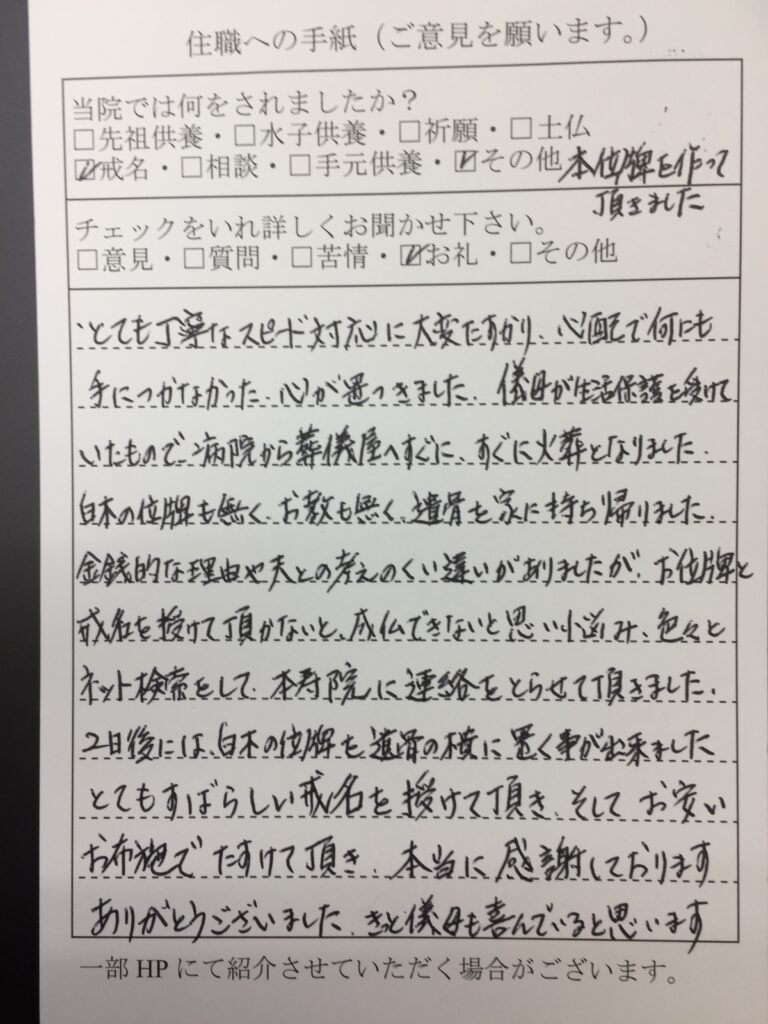 住職への手紙（ご意見を願います。）
当院では何をされましたか？
□先祖供養・□水子供養・□祈願・□土仏
☑戒名・□相談・□手元供養・☑その他 本位牌を作って
頂きました
チェックをいれ詳しくお聞かせ下さい。
□意見・□質問・□苦情・☑お礼・□その他
とても丁寧なスピード対応に大変たすかり、心配で何にも
手につかなかった、心が置つきました。儀母が生活保護を受けて
いたもので病院から葬儀屋へすぐに、すぐに火葬となりました。
白木の位牌も無く、お教も無く、遺骨を家に持ち帰りました。
金銭的な理由や夫との考えのくい違いがありましたが、お位牌と
戒名を授けて頂かないと、成仏できないと思い悩み、色々と
ネット検索をして、本寿院に連絡をとらせて頂きました。
2日後には、白木の位牌を遺骨の横に置く事が出来ました
とてもすばらしい戒名を授けて頂き、そしてお安い
お布施でたすけて頂き、本当に感謝しております
ありがとうございました、きっと儀母も喜んでいると思います
一部HPにて紹介させていただく場合がございます。